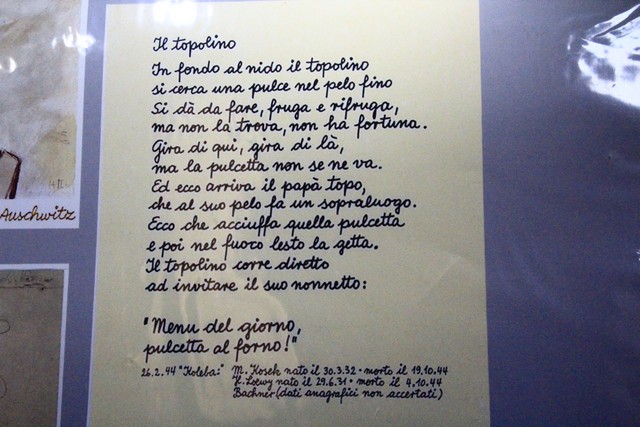 Il topolino
In fondo al nido il topolino
si cerca una pulce nel pelo fino
Si dà da fare, fruga e rifruga,
ma non la trova, non ha fortuna.
Gira di qui, gira di là,
ma la pulcetta non se ne va.
Ed ecco arriva il papà topo,
che al suo pelo fa un sopraluogo.
Ecco che acciuffa quella pulcetta
e poi nel fuoco lesto la getta.
Il topolino corre diretto
ad invitare il suo nonnetto:
"Menu del giorno,
pulcetta al forno!"
26.2.44 "Koleba:" M. Kosek nato il 30.3.32 • morto il 19.10.44
H. Loewy nato il 29.6.31 • morto il 4.10.44
Bachner (dati anagrafici non accertati)
Auschwitz